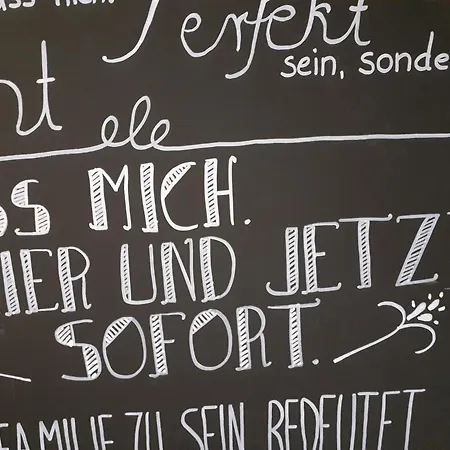 nicht
Perfekt
sein, sonde
MICH.
HIER UND JETZT
SOFORT.
FAMILIE ZU SEIN BEDEUTET